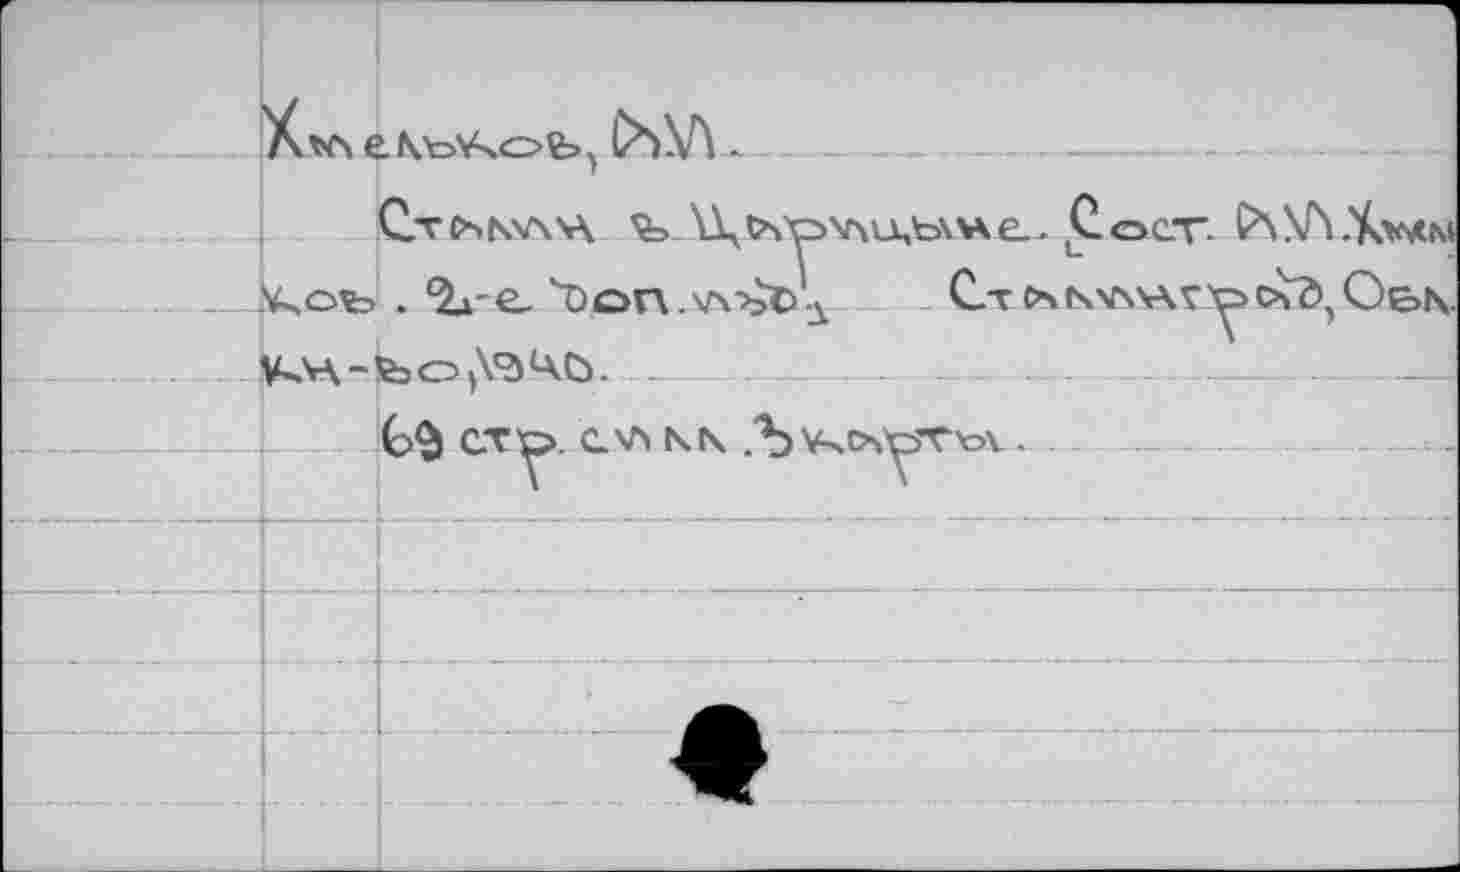 Хмельков, А.И.
Сталин в Царицыне. Сост. А.И.Хмель
ков. 2-е доп.изд. Сталинград, Обл.
кн-во, 1939.
69 стр. с илл. 3 карты.